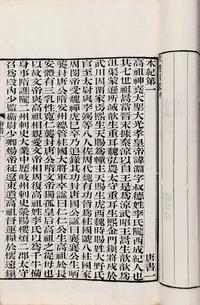 本紀第一　唐書一
高祖神堯大聖大光孝皇帝諱淵字叔德姓李氏隴西成紀人也
其七世祖暠當晉末據秦涼以自王是為涼武昭王暠生歆歆為
沮渠蒙遜所滅歆生重耳魏弘農太守重耳生熙金門鎮將戍于
武川因留家焉熙生天賜為幢主天賜生虎西魏時賜姓大野氏
官至太尉與李弼等八人佐周代魏有功皆為柱國號八柱國家
周閔帝受魏禪虎已卒乃追錄其功封唐國公諡曰襄襄公生昞
襲封唐公隋安州總管柱國大將軍卒諡曰仁仁公生高祖於長
安體有三乳性寬仁襲封唐公隋文帝獨孤皇后高祖之從母也
以故文帝與高祖相親愛文帝相周復高祖姓李氏以為千牛備
身事隋譙隴二州刺史大業中歷岐州刺史滎陽樓煩二郡太守
召為殿內少監衛尉少卿煬帝征遼東遣高祖督運糧於懷遠鎮